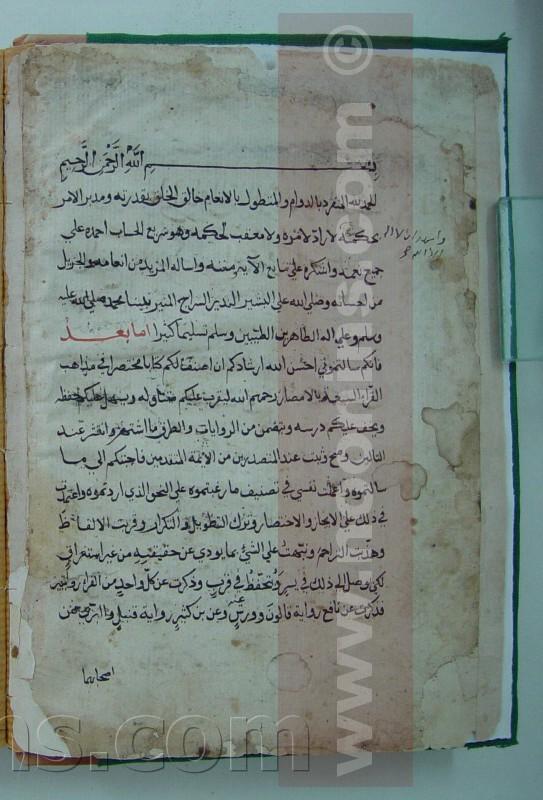 بسم الله الرحمن الرحيم
الحمد لله المنفرد بالدوام والمتطول بالانعام خالق الخلق بقدرته ومدبر الامر
بحكمته لا راد لامره ولا معقب لحكمه وهو سريع الحساب احمده علي
جميع نعمه واشكره علي تتابع الآئه ومننه واساله المزيد من انعامه والجزيل
من احسانه وصلي الله علي البشير النذير السراج المنير نبينا محمد صلي الله عليه
وسلم وعلي اله الطاهرين الطيبين وسلم تسليما كثيرا اما بعد
فانكم سالتموني احسن الله ارشادكم ان اصنف لكم كتابا مختصرا في مذاهب
القراء السبعة بالامصار رحمهم الله ليقرب عليكم تناوله ويسهل عليكم حفظه
ويخف عليكم درسه ويتضمن من الروايات والطرق ما اشتهر وانتشر عند
التالين وصح وثبت عند المتصدرين من الائمة المتقدمين فاجبتكم الي ما
سالتموه واعملت نفسي في تصنيف ما رغبتموه علي النحو الذي اردتموه واعتمدت
في ذلك علي الايجاز والاختصار وترك التطويل والتكرار وقربت الالفاظ
وهذبت التراجم ونبهت علي الشي بما يودي عن حقيقته من غير استغراق
لكي يوصل الي ذلك في يسر ويتحفظ في قرب وذكرت عن كل واحد من القراء روايتين
فذكرت عن نافع رواية قالون وورش عنه وعن بن كثير رواية قنبل والبزي عن
اصحابهما
www.noorlus.com ©
ns.com